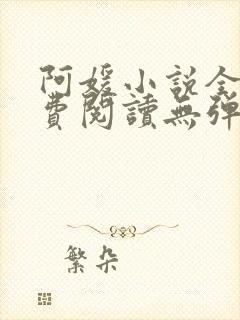 阿媛小说全
費閱讀無彈
繁朵